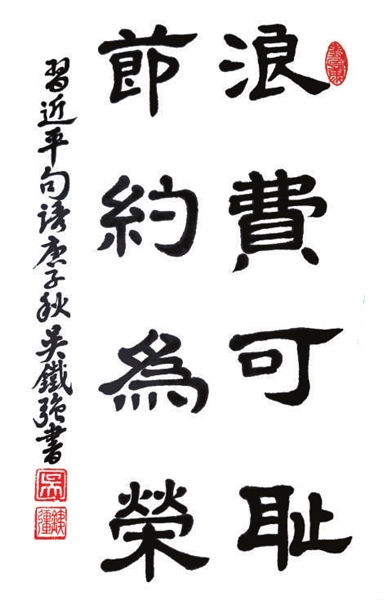 浪費可耻
節約為榮
習近平句語庚子秋吳鐵強書
吳